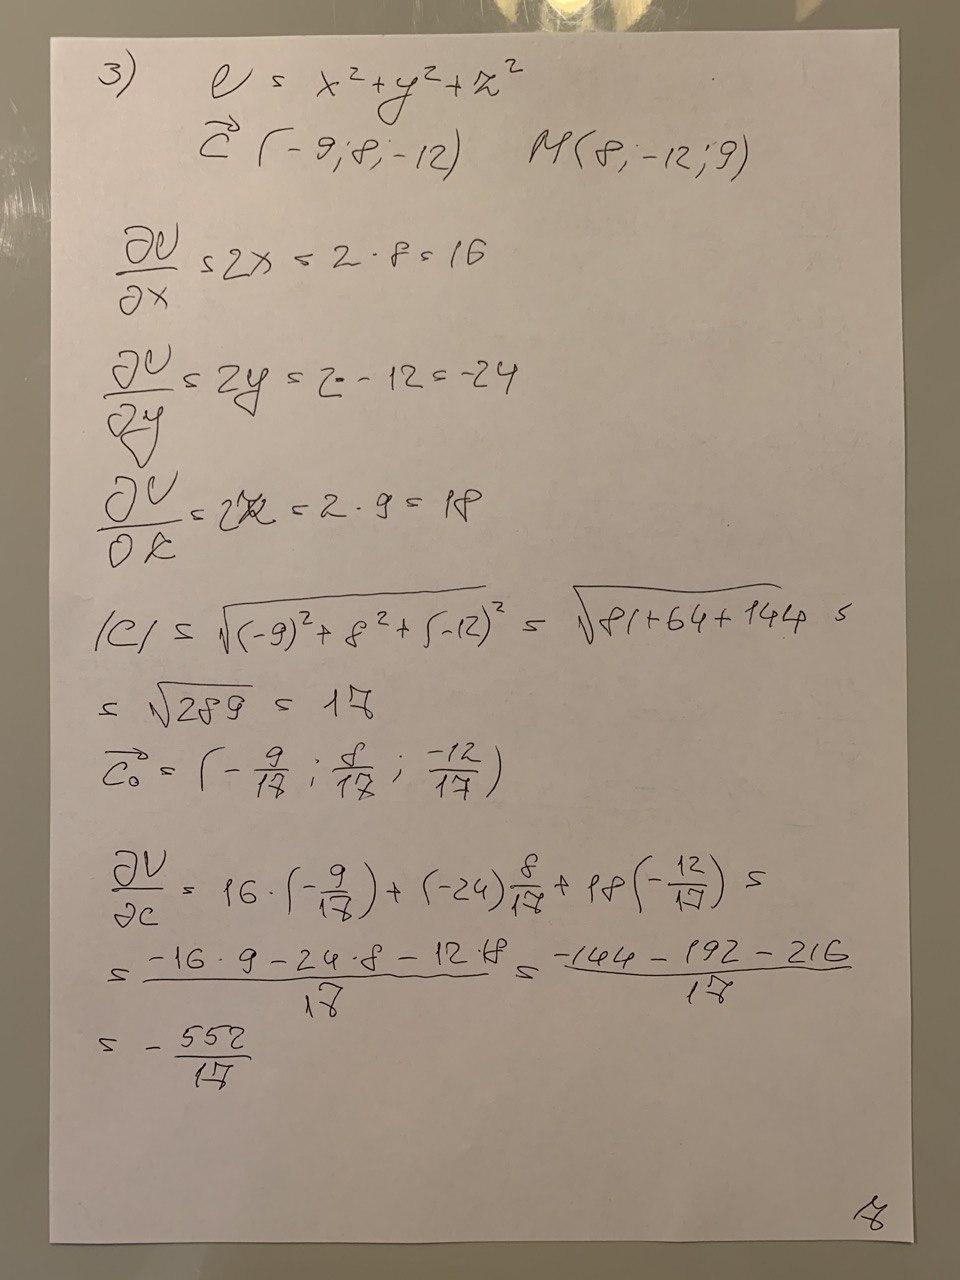 3) U = x²+y²+z²
c⃗ (-9;8;-12) M(8;-12;9)
∂U/∂x = 2x = 2·8 = 16
∂U/∂y = 2y = 2·-12 = -24
∂U/∂z = 2z = 2·9 = 18
|C| = √((-9)²+8²+(-12)²) = √(81+64+144) =
= √289 = 17
c⃗₀ = (-9/17; 8/17; -12/17)
∂U/∂c = 16·(-9/17)+(-24)8/17+18(-12/17) =
= (-16·9-24·8-12·18)/17 = (-144-192-216)/17
= -552/17
7